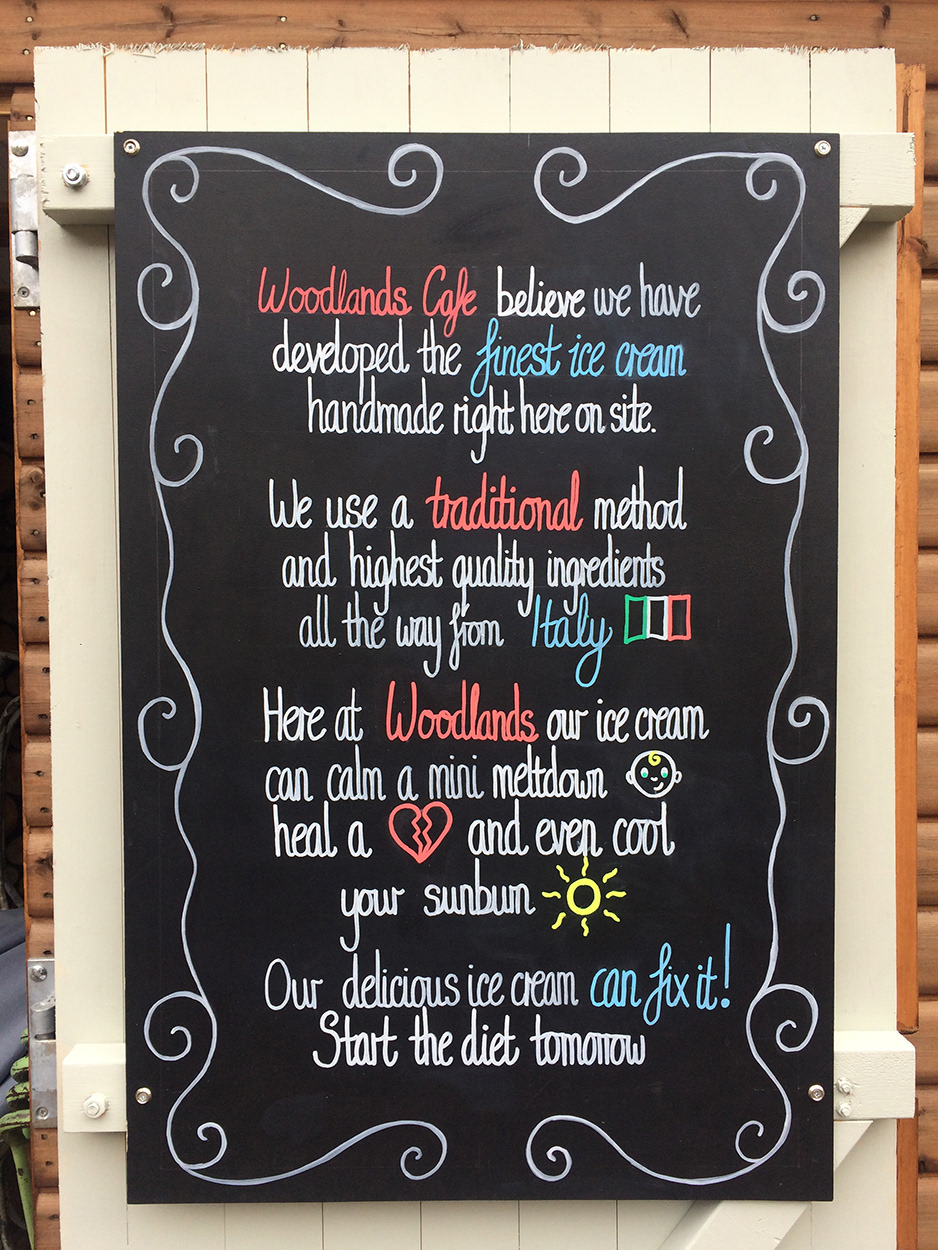 Woodlands Cafe believe we have
developed the finest ice cream
handmade right here on site.
We use a traditional method
and highest quality ingredients
all the way from Italy
Here at Woodlands our ice cream
can calm a mini meltdown
heal a and even cool
your sunburn
Our delicious ice cream can fix it!
Start the diet tomorrow